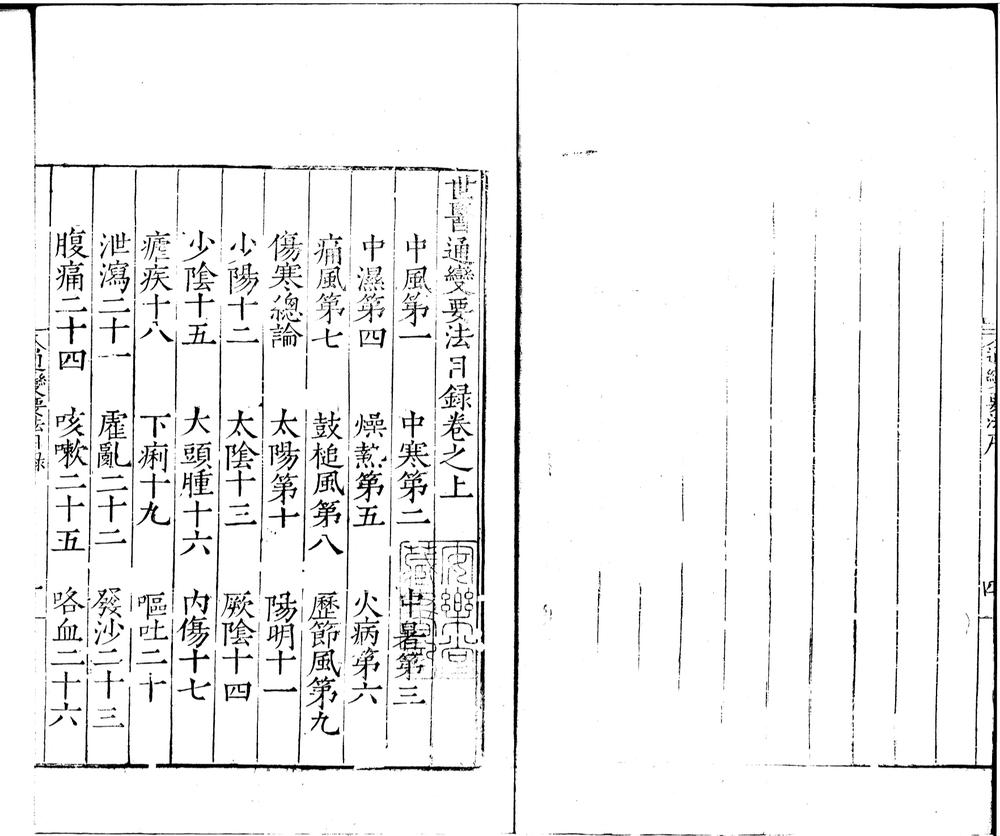 世醫通變要法目録卷之上
中風第一 中寒第二 中暑第三
中濕第四 燥𤍠第五 火病第六
痛風第七 鼓槌風第八 歷節風第九
傷寒總論 太陽第十 陽明十一
少陽十二 太陰十三 厥陰十四
少陰十五 大頭腫十六 内傷十七
瘧疾十八 下痢十九 嘔吐二十
泄瀉二十一 霍亂二十二 發沙二十三
腹痛二十四 咳嗽二十五 咯血二十六
通變要法目録
一